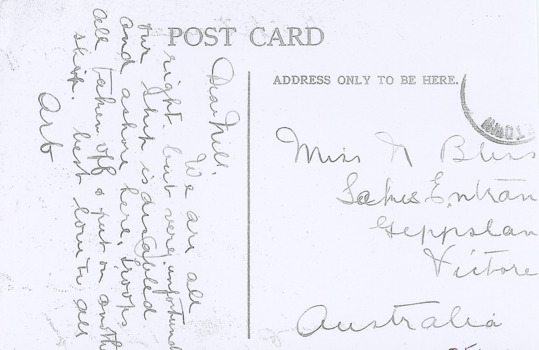 POST CARD
Dear Nell.
We are all
right. but very unfortuna
our ship is disabled
and ashore here. Troops
all taken off & put on anothe
ship. best love to all
Art
ADDRESS ONLY TO BE HERE.
Miss N Bliss
Lakes Entran
Geppslan
Victore
Australia